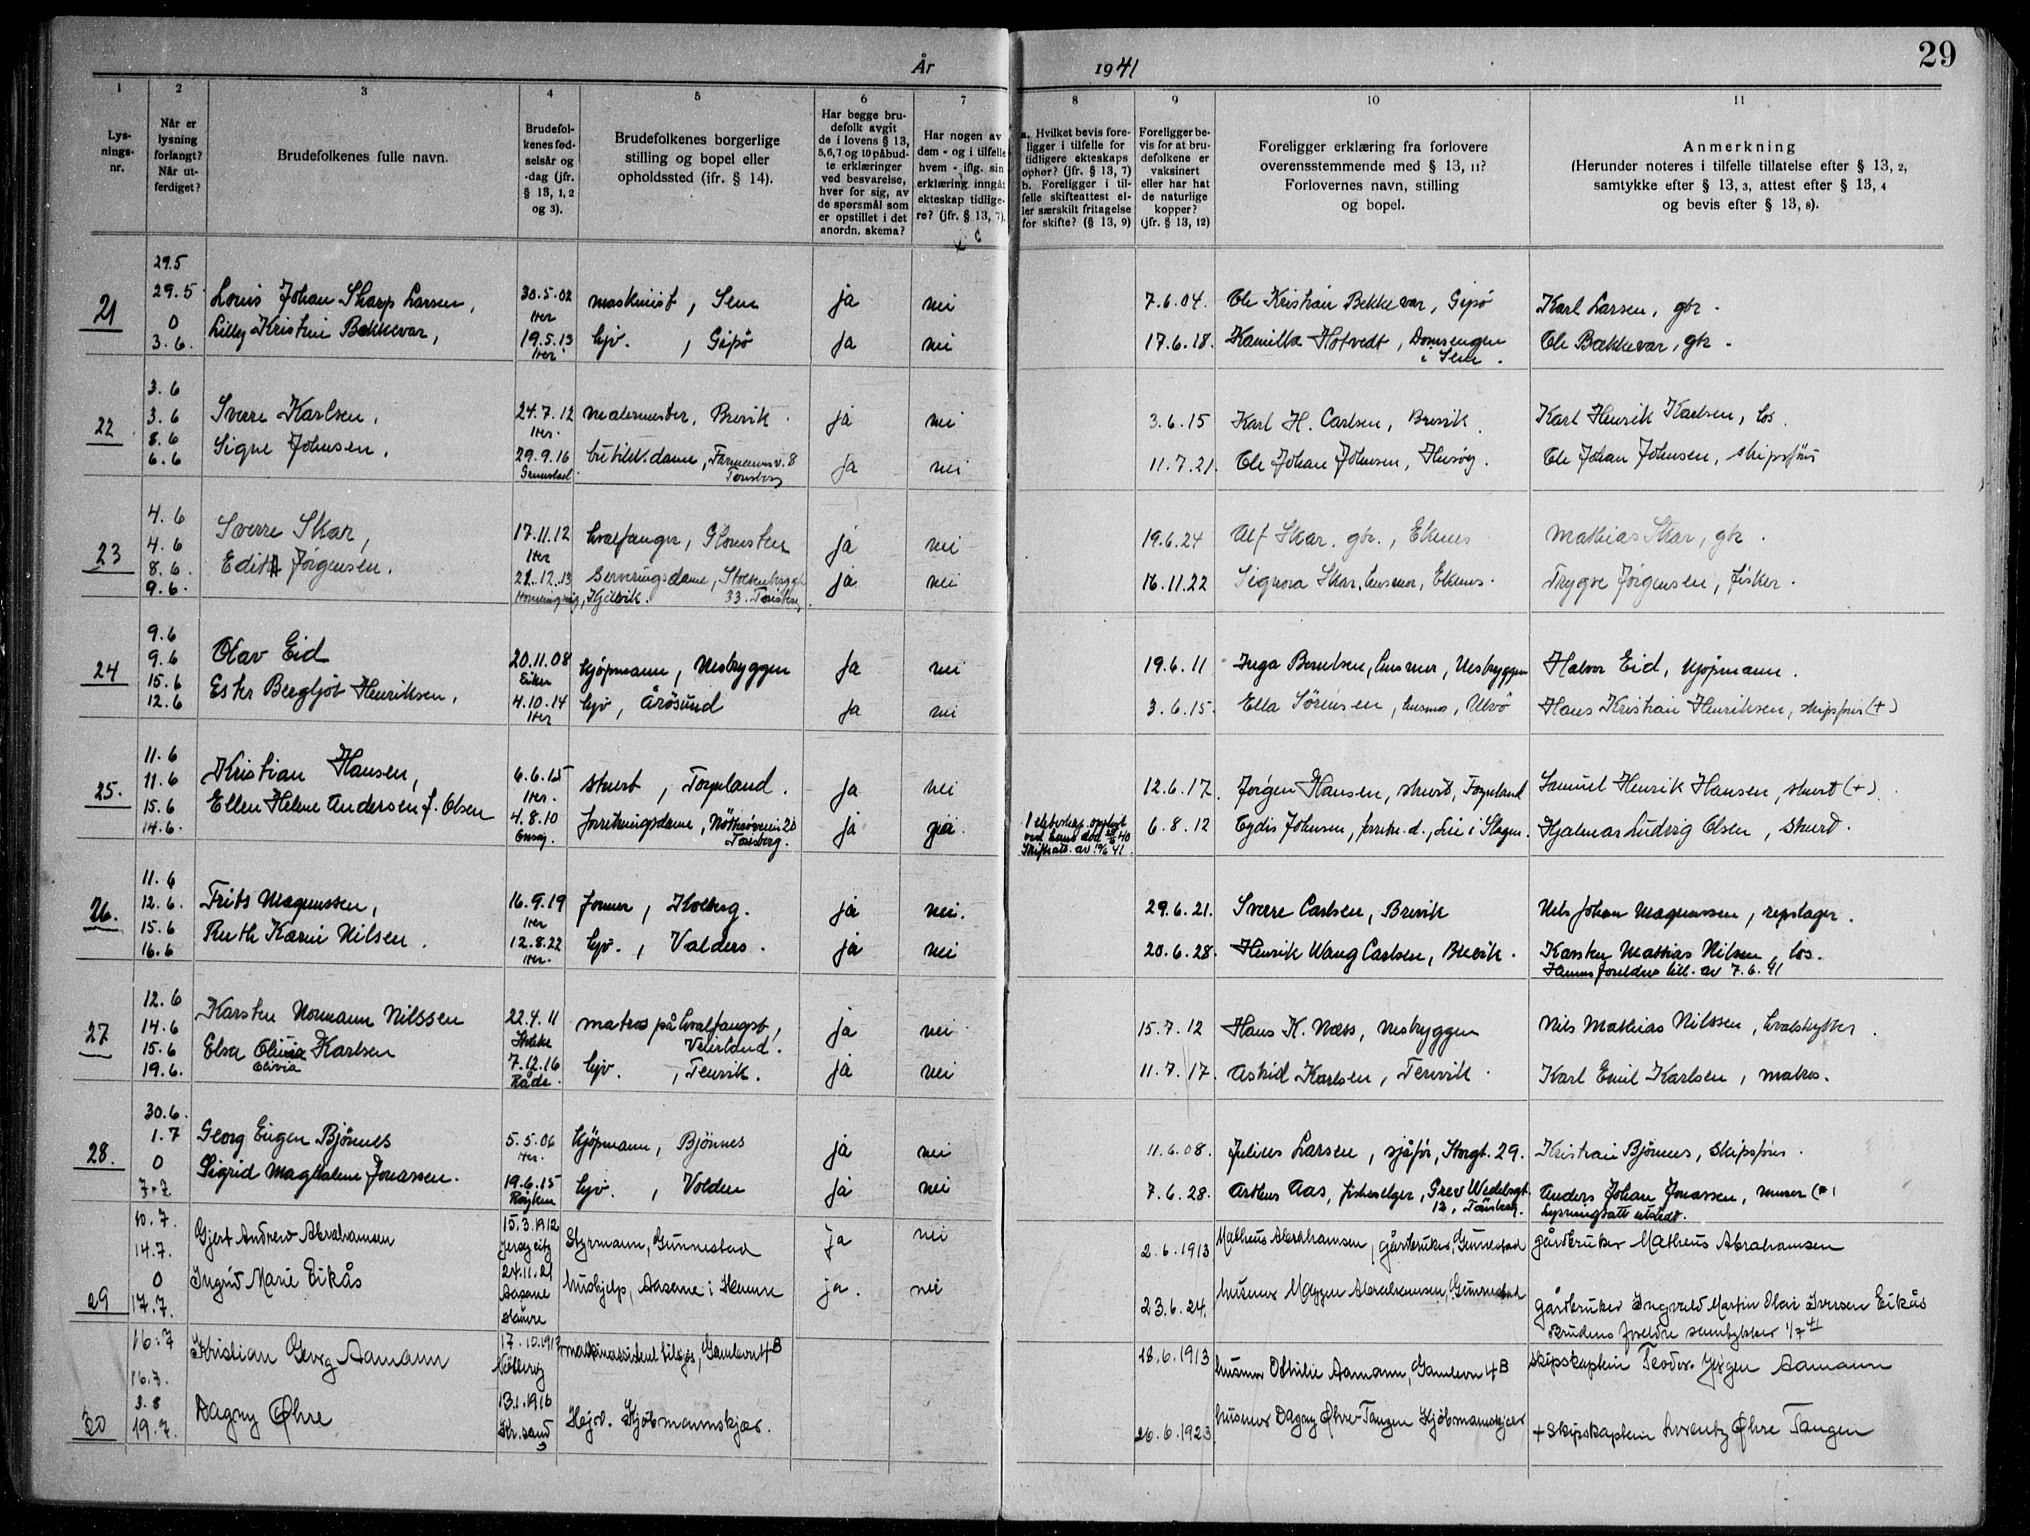 29
År 1941
1
Lys-
nings-
nr.
2
Når er
lysning
forlangt?
Når ut-
ferdiget?
3
Brudefolkenes fulle navn.
4
Brudefol-
kenes fød-
selsår og
-dag (jfr.
§ 13, 1, 2
og 3).
5
Brudefolkenes borgerlige
stilling og bopel eller
opholdssted (ifr. § 14).
6
Har begge bru-
defolk avgit
de i lovens § 13,
5,6,7 og 10 påbud-
te erklæringer
ved besvarelse,
hver for sig, av
de spørsmål som
er opstillet i det
anordn. skema?
7
Har nogen av
dem - og i tilfelle
hvem - iflg. sin
erklæring inngåt
ekteskap tidlige-
re? (jfr. § 13, 7).
8
a. Hvilket bevis fore-
ligger i tilfelle for
tidligere ekteskaps
ophør? (jfr. § 13, 7)
b. Foreligger i til-
felle skifteattest el-
ler særskilt fritagelse
for skifte? (§ 13, 9)
9
Foreligger be-
vis for at bru-
defolkene er
vaksinert
eller har hat
de naturlige
kopper?
(jfr. § 13, 12)
10
Foreligger erklæring fra forlovere
overensstemmende med § 13, 11?
Forlovernes navn, stilling
og bopel.
11
Anmerkning
(Herunder noteres i tilfelle tillatelse efter § 13, 2,
samtykke efter § 13, 3, attest efter § 13, 4
og bevis efter § 13, 8).
29.5
21 29.5 Louis Johan Skarp Larsen, 30.5.02 maskinist, Sem ja nei 7.6.04. Ole Kristian Bekkevar, Gipø Karl Larsen, gbr.
0 her
3.6. Lilly Kristine Bekkevar, 19.5.13 hjv., Gipø ja nei 17.6.18. Kamilla Hotvedt, Domsengen Ole Bækkevar, gbr.
her i Sem.
3.6
22 3.6 Sverre Karlsen, 24.7.12 malermester, Brevik. ja nei 3.6.15 Karl H. Carlsen, Brevik. Karl Henrik Karlsen, los.
8.6 her.
6.6 Signe Johnsen, 29.9.16 butikkdame, Farmannsv. 8 ja nei 11.7.21. Ole Johan Johnsen, Husøy. Ole Johan Johnsen, skipsfører
Gunnestad Tønsberg
4.6
23 4.6 Sverre Skar, 17.11.12 hvalfanger, Glomsten ja nei 19.6.24 Alf Skar, gbr., Ekenes Mathias Skar, gbr.
8.6. her
9.6. Edith Jørgensen. 21.12.13 Serveringsdame, Stoltenberggt. ja nei 16.11.22 Signora Skar, husmor, Ekenes. Trygve Jørgensen, fisker.
Honningsvåg, Kjelvik. 33. Tønsberg
9.6
24 9.6 Olav Eid 20.11.08 kjøpmann, Nesbryggen ja nei 19.6.11 Inga Berntsen, husmor, Nesbryggen Halvor Eid, kjøpmann.
15.6 Eiker
12.6 Ester Bergljot Henriksen, 4.10.14 hjv, Årøsund ja nei 3.6.15. Ella Sørensen, husmor, Ulvø Hans Kristian Henriksen, skipsfører (+)
her
11.6
25. 11.6 Kristian Hansen, 6.6.15 stuert, Torpland. ja nei 12.6.17. Jørgen Hansen, stuert, Torpland Samuel Henrik Hansen, stuert (+)
15.6 her.
14.6. Ellen Helene Andersen f. Olsen 4.8.10 forretningsdame, Nøtterøveien 20 ja ja 1 ekteskap oppløst 6.8.12 Eydis Johnsen, forretn.d., Lie i Slagen. Hjalmar Ludvig Olsen, stuert.
Onsøy. Tønsberg. Skifteatt. av 10/6 41.
11.6
26. 12.6. Frits Magnussen, 16.9.19 former, Kolberg. ja nei. 29.6.21. Sverre Carlsen, Brevik Nils Johan Magnussen, repslager.
15.6 her
16.6 Ruth Karin Nilsen. 12.8.22 hjv., Valders. ja nei 20.6.28. Henrik Wang Carlsen, Brevik. Karsten Mathias Nilsen, los.
her. Hennes foreldres till. av 7.6.41
12.6
27 14.6 Karsten Normann Nilssen 22.4.11 matros på hvalfangst, ja nei 15.7.12 Hans K. Næss, Nesbryggen Nils Mathias Nilssen, hvalskytter.
15.6 Stokke Veierland.
19.6. Elsa Olivia Karlsen 7.12.16 hjv., Tenvik. ja nei 11.7.17. Astrid Karlsen, Tenvik. Karl Emil Karlsen, matros.
Olivia Råde.
30.6.
28. 1.7 Georg Eugen Bjønnes 5.5.06 kjøpmann, Bjønnes ja nei 11.6.08. Julius Larsen, sjåfør, Storgt. 29. Kristian Bjønnes, skipsfører.
0 her.
7.7 Sigrid Magdalene Jonassen. 19.6.15 hjv., Volden ja nei 7.6.28. Arthur Aas, fiskeselger, Grev Wedelsgt. Anders Johan Jonassen, murer (+)
Røyken 12, Tønsberg. Lysningsatt utstedt.
10.7. Gjert Andrew Abrahamsen 15.3.1912 Styrmann, Gunnestad ja nei 2.6.1913 Matheus Abrahamsen, gårdbruker, Gunnestad gårdbruker Matheus Abrahamsen
14.7. Jersey city
29 0 Ingrid Marie Eikås 24.11.21 hushjelp, Aasane i Hamre ja. nei 23.6.24. husmor Maggen Abrahamsen, Gunnestad gårdbruker Ingvald Martin Olai Iversen Eikås
17.7. Aasane Hamre Brudens foreldre samtykker 1/7 41
16.7 Kristian Georg Aamann 17.10.1912 maskinassistent tilsjøs, Gamlevn 4B 18.6.1913 husmor Othilie Aamann, Gamlevn 4B skipskaptein Teodor Jørgen Aamann
16.7. Nøtterøy
3.8
30 19.7. Dagny Øhre 13.1.1916 Hejv. Kjøbmannskjær. 26.6.1923 husmor Dagny Øhre-Tangen Kjøbmannskjær + Skipskaptein Lorentz Øhre Tangen
Kr.sand S